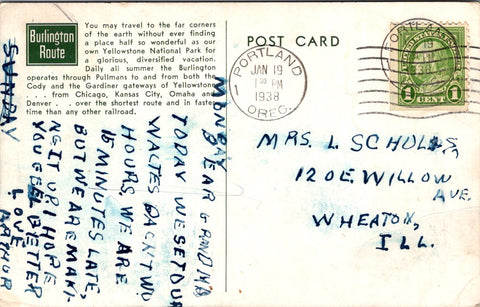 Burlington
Route
You may travel to the far corners
of the earth without ever finding
a place half so wonderful as our
own Yellowstone National Park for
a glorious, diversified vacation.
Daily all summer the Burlington
operates through Pullmans to and from both the
Cody and the Gardiner gateways of Yellowstone
. . . from Chicago, Kansas City, Omaha and
Denver . . over the shortest route and in faster
time than any other railroad.
POST CARD
PORTLAND
1
JAN 19
1 30 PM
1938
OREG.
PORTLAND
19
1 CENT 1
MRS. L SCHOLLS
120 E. WILLOW
AVE.
WHEATON,
ILL.
SUNDAY
MONDAY
DEAR GRANDMA
TODAY WE SET OUR
WALTES BACK TWO
HOURS. WE ARE
15 MINUTES LATE,
BUT WE ARE MAKI-
NG IT UP. I HOPE
YOU FEEL BETTER
LOVE
ARTHUR